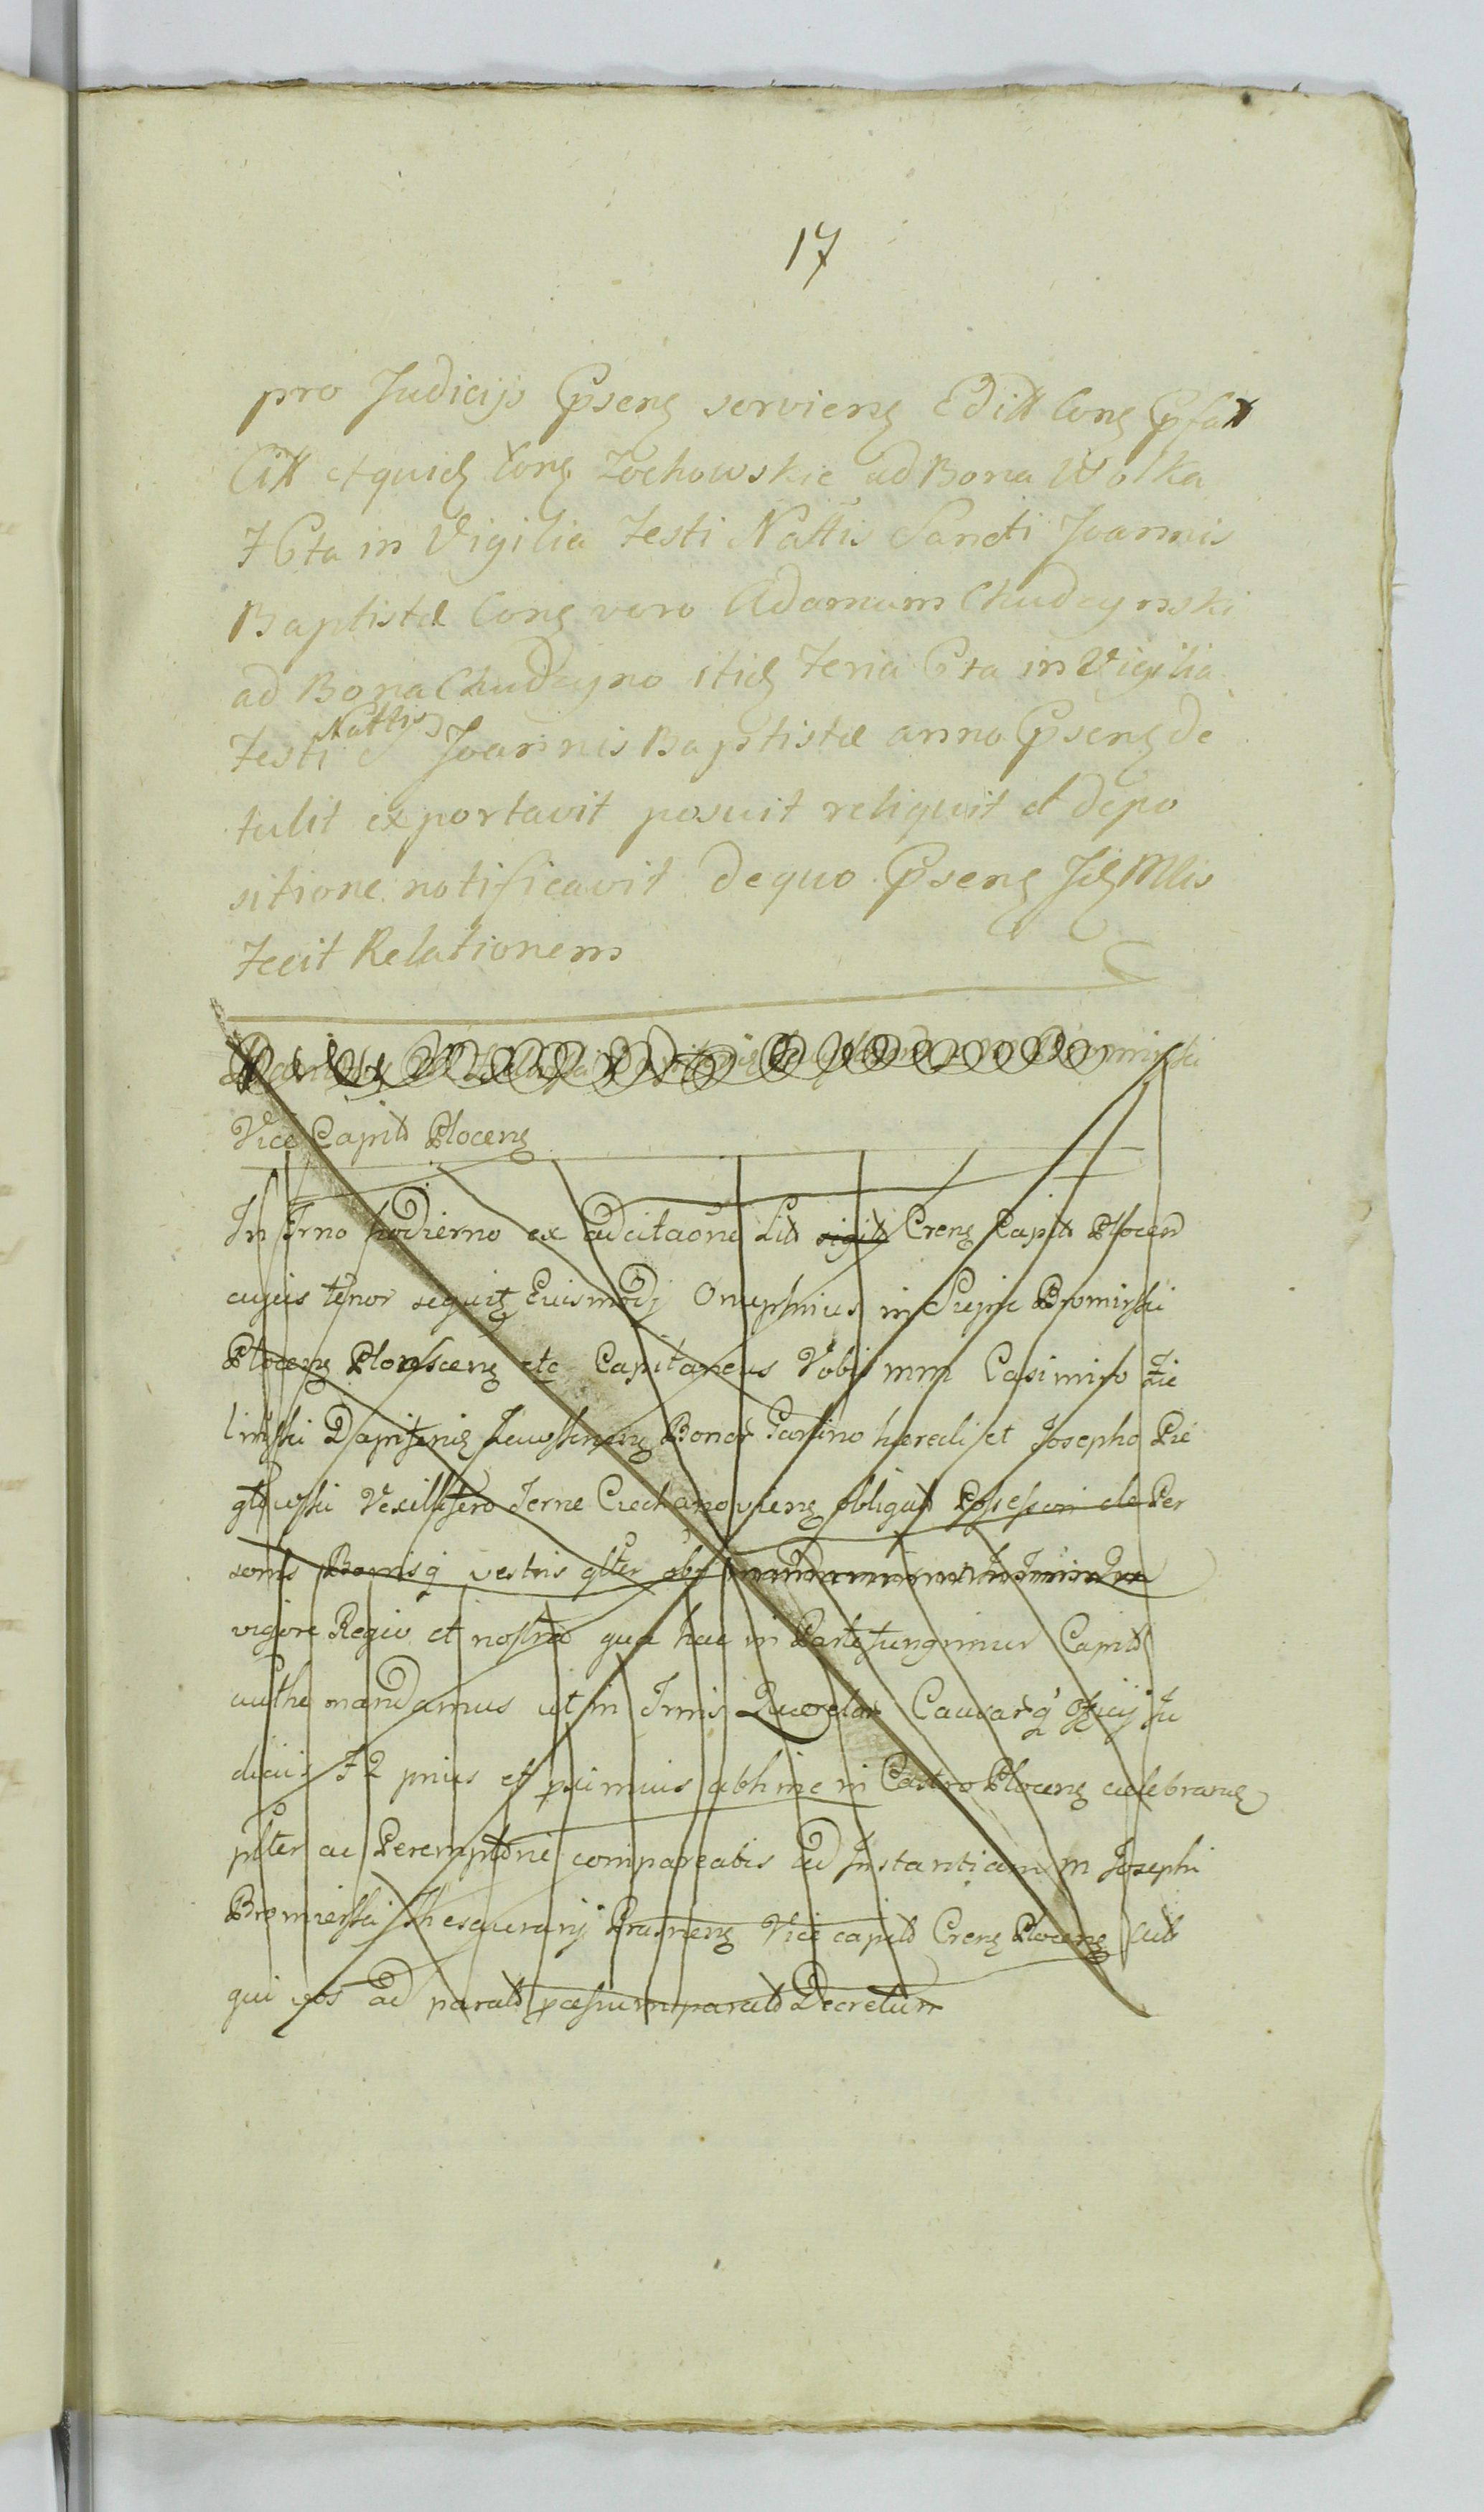 17
pro Judicijs Pseng servieng Editt Cong Psatt
Citt et quid Cong Zochowskie ad Bona Wolka
F 6ta in Vigilia Festi Nattis Sancti Joannis
Baptistæ Cong vero Adamum Chudzynski
ad Bona Chudzyno itid Feria 6ta in Vigilia
Nattis
Festi S Joannis Baptistæ anno Pseng de
tulit exportavit posuit reliquit et depo
sitione notificavit de quo Pseng Jd Mlis
Fecit Relationem
Vice Capitt Ploceng
In Trno hodierno ex adcitaone Litt sigitt Creng Capitt Ploceng
cujus tenor sequit Euismodj Onuphrius in Siepre Bromirski
Ploceng Plonsceng etc Capitaneus Vobis mm Casimiro Zie
linski Dapifero Bonor haeredi et Josepho Pie
glowski Vexillifero Terræ Ciechanovieng obligatt Possessori de Per
sonis Bonisq vestris glter
vigore Regia et nostra qua hac in Parte fungimur Capitt
authe mandamus ut in Trmis Querelar Causarq Officij Ju
diciis F 2 prius et primius abhinc in Castro Ploceng celebrang
plter ac Peremptorie compareatis ad Instantiam m Josephi
Bromierski Thesaurarij Prasneng Vice capitt Creng Ploceng
qui vos ad paratt Decretum